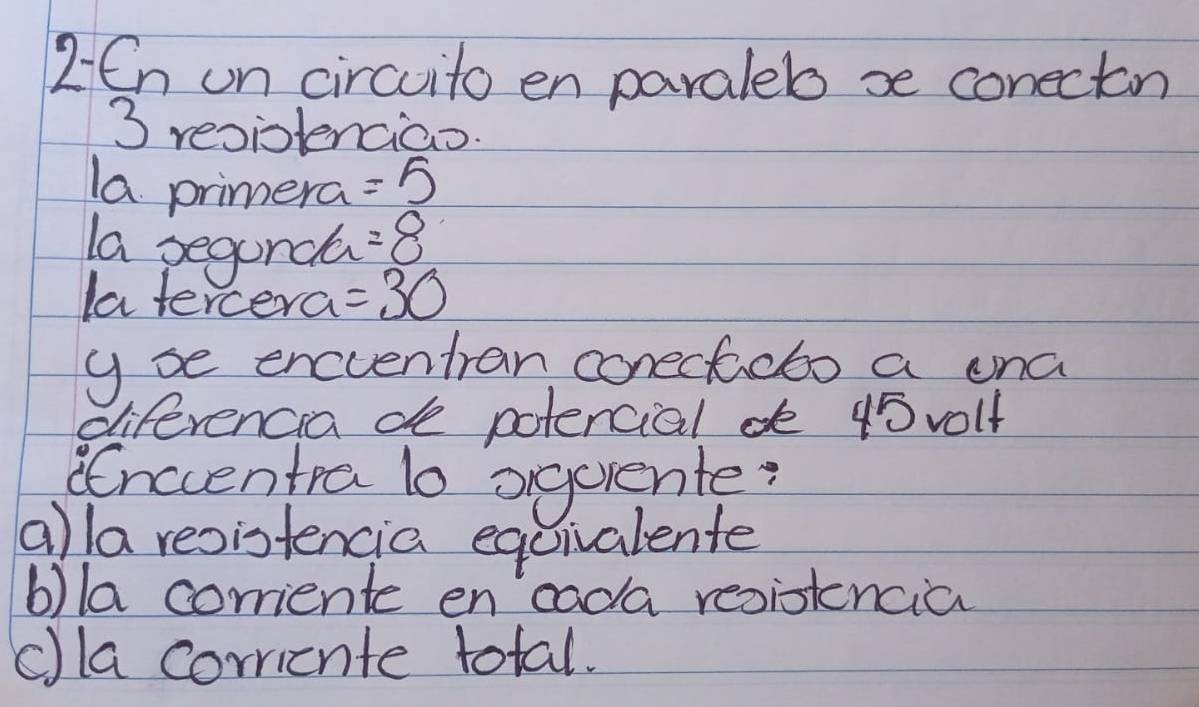 2-En un circuito en paralelo se conectan
3 resistencias.
la primera = 5
la segunda = 8
la tercera = 30
y se encuentran conectados a una
diferencia de potencial de 45 volt
¡Encuentra lo siguiente:
a) la resistencia equivalente
b) la corriente en cada resistencia
c) la corriente total.